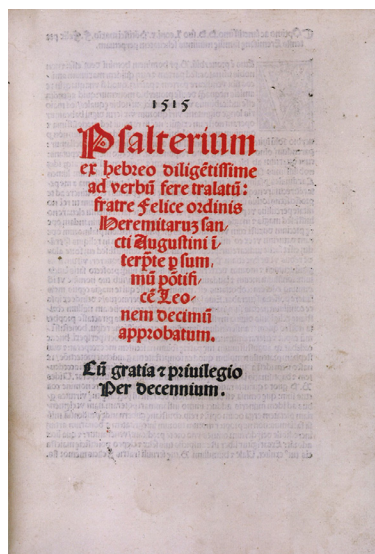 1515
Psalterium
ex hebreo diligētissime
ad verbū fere tralatū:
fratre Felice ordinis
Heremitaruʒ san⸗
cti Augustini ī⸗
terp̄te ꝑ sum⸗
mū pōtifi⸗
cē Leo⸗
nem decimū
approbatum.
Cū gratia ⁊ priuilegio
Per decennium.